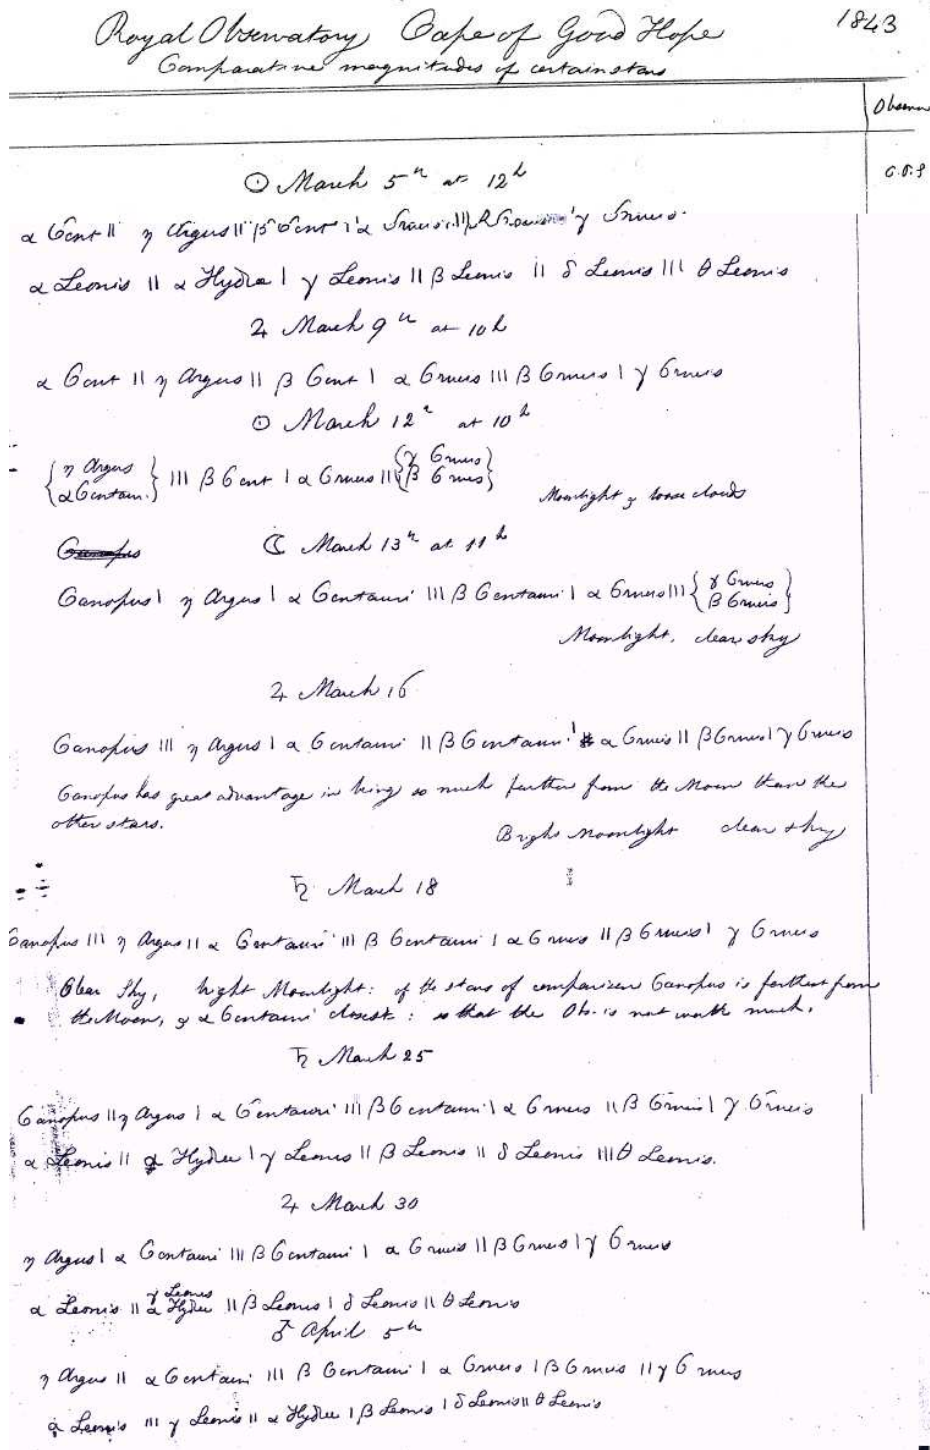 Royal Observatory Cape of Good Hope 1843
Comparative magnitudes of certain stars
Observer
☉ March 5th at 12h
α Cent || η Argus || β Cent | α Crucis ||| β Crucis | γ Crucis.
α Leonis || α Hydræ | γ Leonis || β Leonis || δ Leonis ||| θ Leonis
♃ March 9th at 10h
α Cent || η Argus || β Cent | α Crucis ||| β Crucis | γ Crucis
☉ March 12th at 10h
{η Argus α Centauri} ||| β Cent | α Crucis ||| {γ Crucis β Crucis}
Moonlight & loose clouds
Canopus
☾ March 13th at 11h
Canopus | η Argus | α Centauri ||| β Centauri | α Crucis ||| {γ Crucis β Crucis}
Moonlight, clear sky
♃ March 16
Canopus ||| η Argus | α Centauri || β Centauri | α Crucis || β Crucis | γ Crucis
Canopus has great advantage in being so much further from the Moon than the
other stars.
Bright Moonlight clear sky
♄ March 18
Canopus ||| η Argus || α Centauri ||| β Centauri | α Crucis || β Crucis | γ Crucis
Clear Sky, bright Moonlight: of the stars of comparison Canopus is farthest from
the Moon, & α Centauri closest: so that the Obs. is not worth much.
♄ March 25
Canopus || η Argus | α Centauri ||| β Centauri | α Crucis || β Crucis | γ Crucis
α Leonis || α Hydræ | γ Leonis || β Leonis || δ Leonis ||| θ Leonis.
♃ March 30
η Argus | α Centauri ||| β Centauri | α Crucis || β Crucis | γ Crucis
γ Leonis
α Leonis || α Hydræ || β Leonis | δ Leonis || θ Leonis
♂ April 5th
η Argus || α Centauri ||| β Centauri | α Crucis | β Crucis || γ Crucis
α Leonis ||| γ Leonis || α Hydræ | β Leonis | δ Leonis || θ Leonis